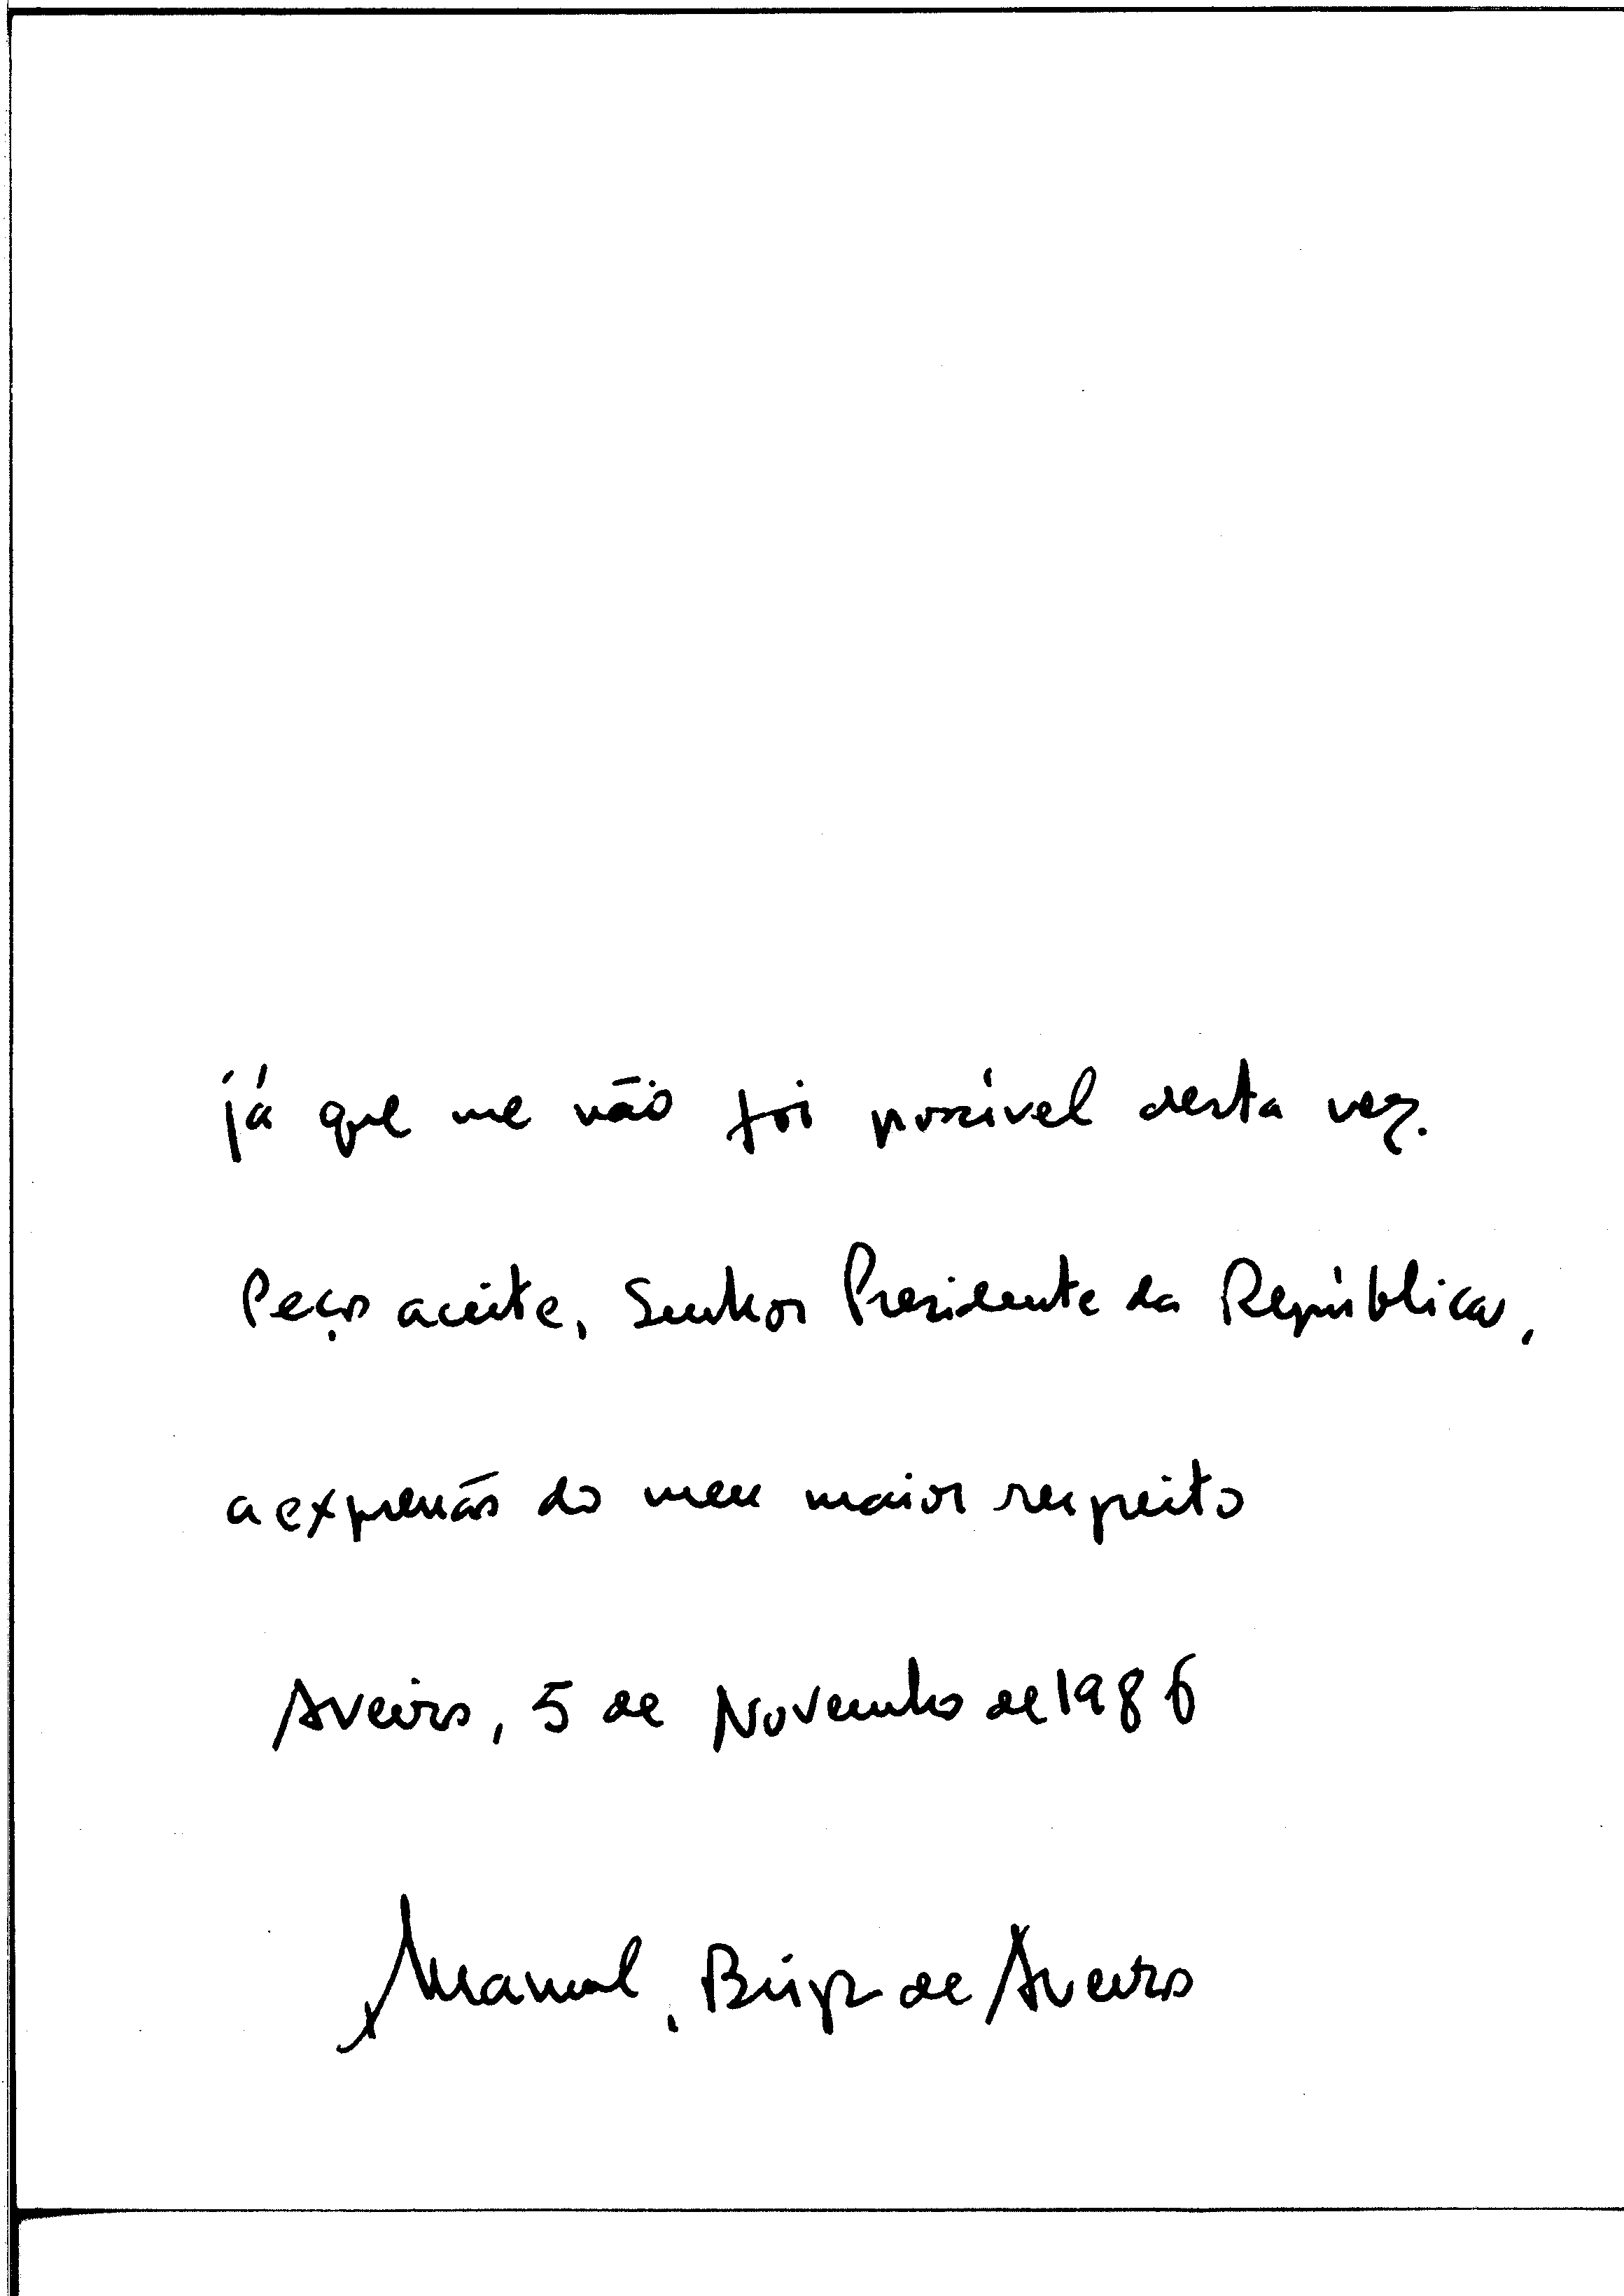 já que me não foi possível desta vez.
Peço aceite, Senhor Presidente da República,
a expressão do meu maior respeito
Aveiro, 5 de Novembro de 1986
Manuel, Bispo de Aveiro